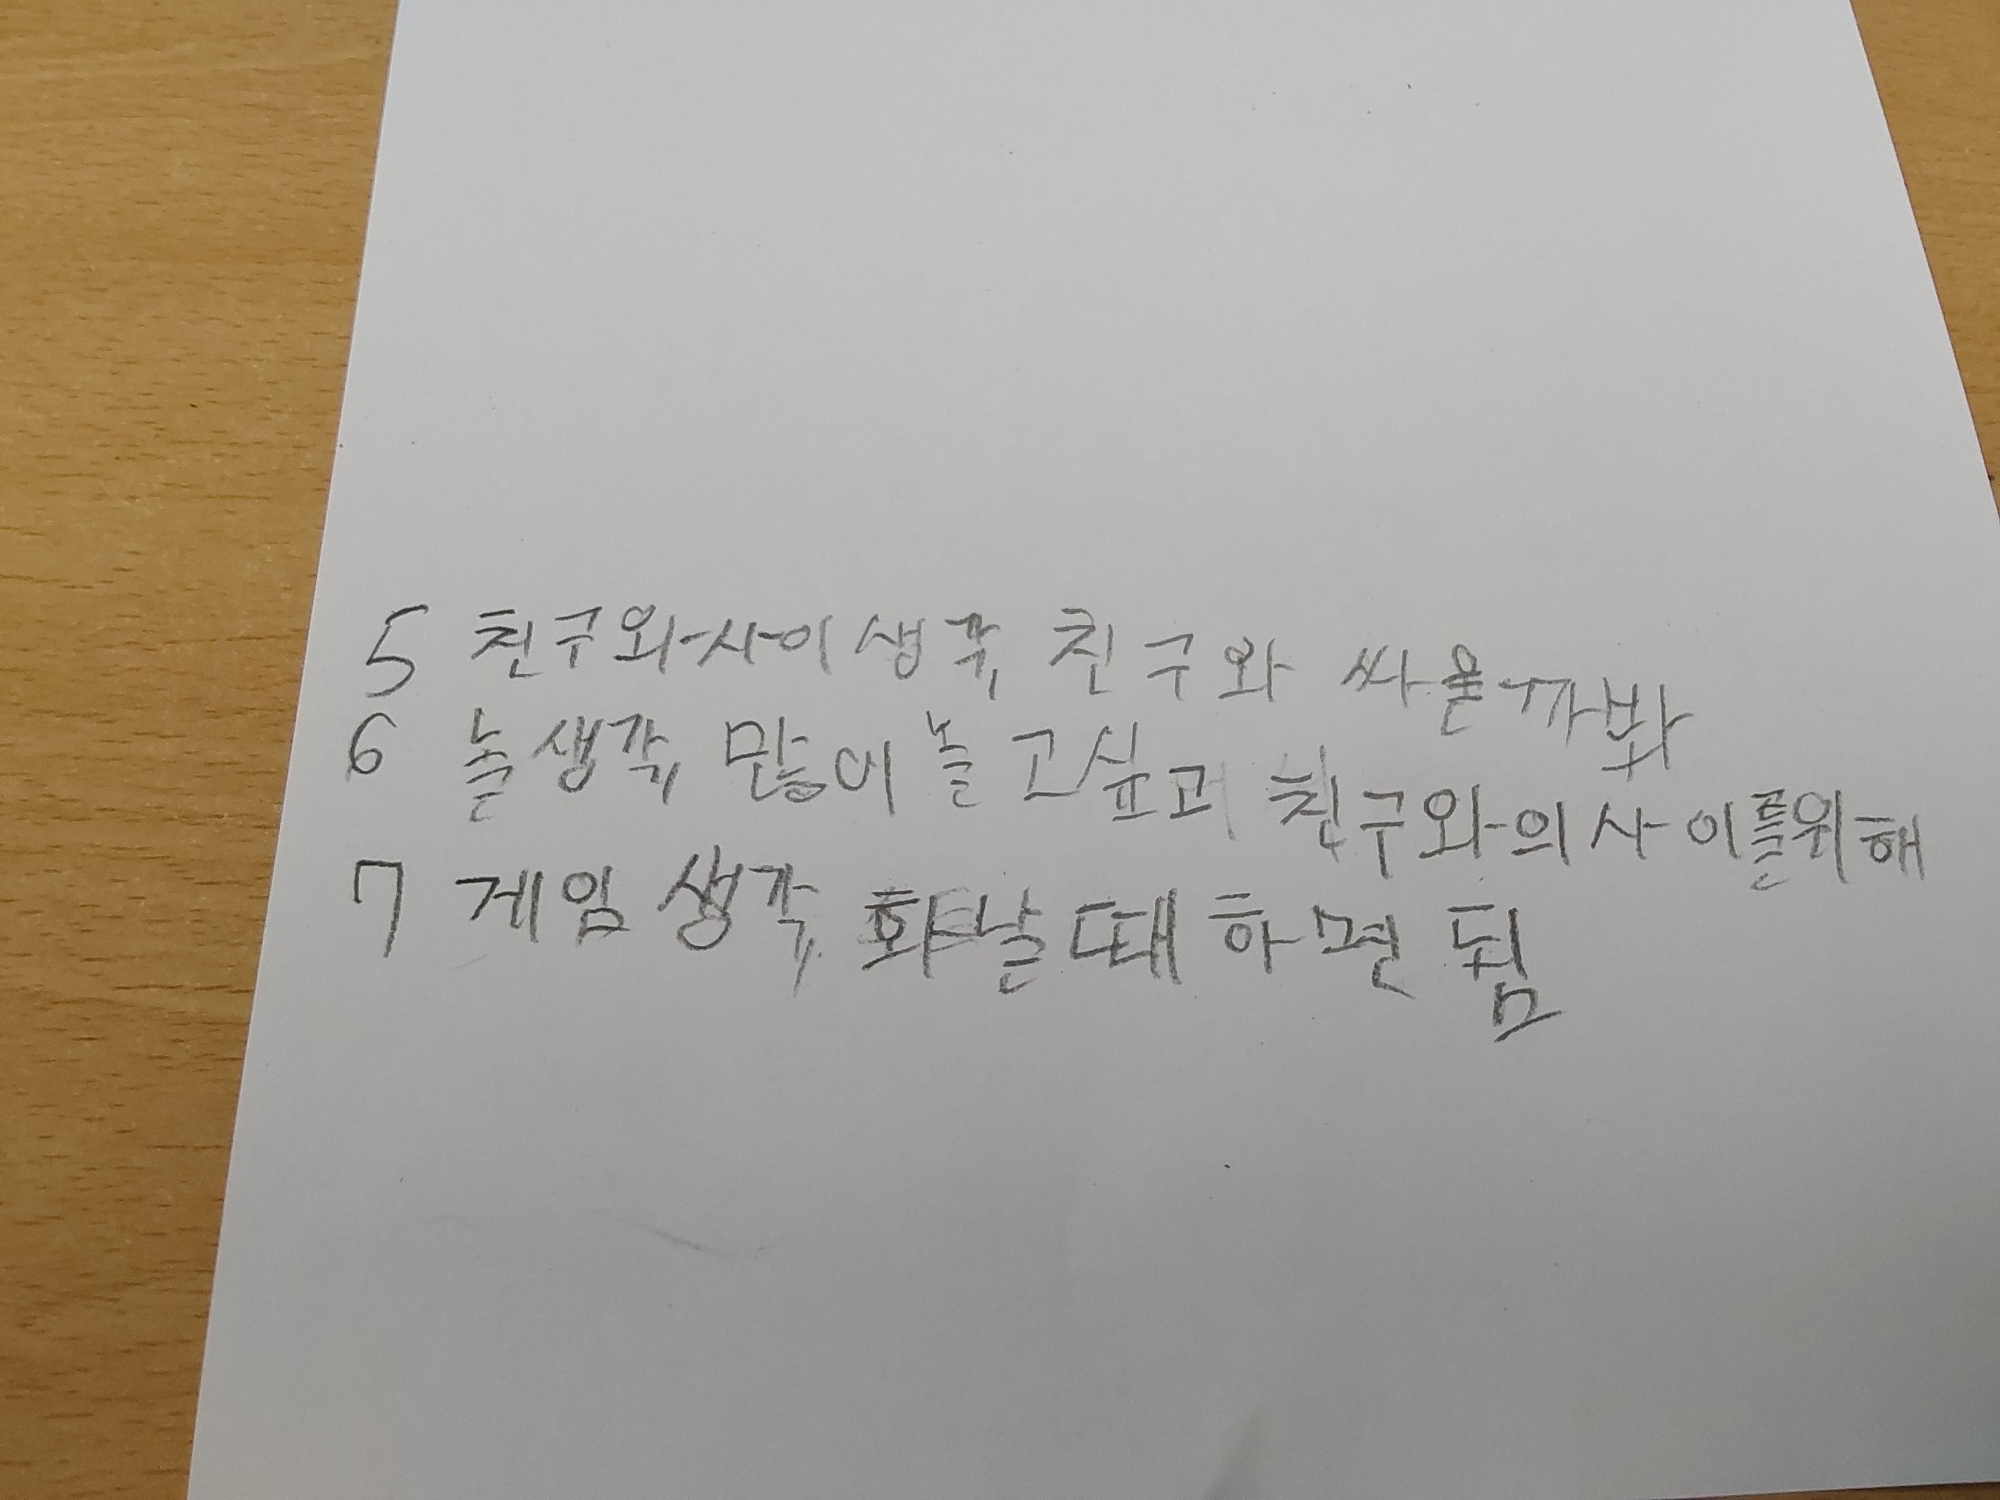 5 친구와사이 생각, 친구와 싸울까봐
6 놀생각, 많이 놀고싶고 친구와의사이를위해
7 게임 생각, 화날때 하면 됨